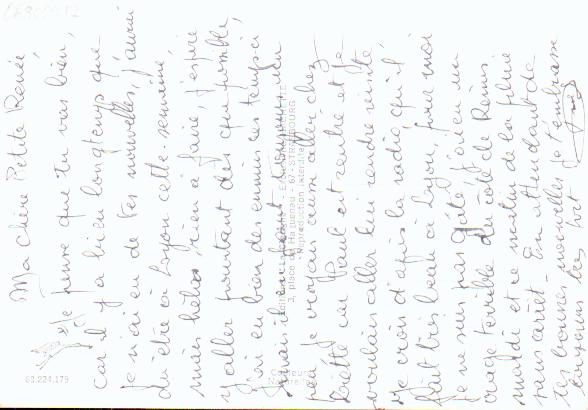 Ma chère Petite Renée
Je pense que tu vas bien,
car il y a bien longtemps que
je n'ai eu de tes nouvelles, j'aurai
dû être à Lyon cette semaine,
mais hélas rien à faire, j'espère
y aller pourtant dès que possible,
j'ai eu bien des ennuis ces temps-ci
mais
pas. Je voulais aussi aller chez
car Paul est rentré et je
voulais aller lui rendre visite
Je crois d'après la radio qu'il
fait très beau à Lyon, pour moi
je ne suis pas gâté, j'ai eu un
orage terrible du côté de Reims
mardi et ce matin de la pluie
sans arrêt - En attendant de
tes bonnes nouvelles je t'embrasse
bien fort
3, place de Haguenau - 67 - STRASBOURG
Reproduction interdite
Couleurs
Naturelles
63.224.179